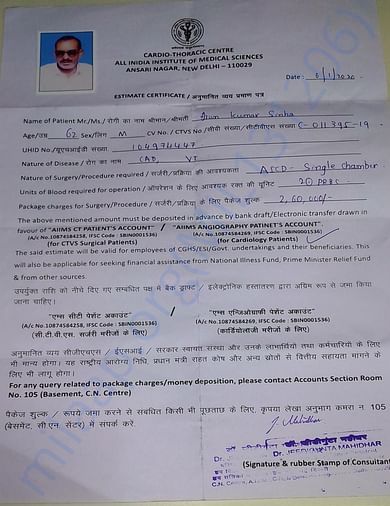 CARDIO-THORACIC CENTRE
ALL INIDIA INSTITUTE OF MEDICAL SCIENCES
ANSARI NAGAR, NEW DELHI - 110029
Date : 6/1/2020
ESTIMATE CERTIFICATE / अनुमानित व्यय प्रमाण पत्र
Name of Patient Mr./Ms./ रोगी का नाम श्रीमान/श्रीमती Arun Kumar Sinha
Age/उम्र 62 Sex/लिंग M CV No. / CTVS No/सीवी संख्या/सीटीवीएस संख्या C-011395-19
UHID No/यूएचआईडी संख्या 104974447
Nature of Disease / रोग का नाम CAD, VT
Nature of Surgery/Procedure required / सर्जरी/प्रक्रिया की आवश्यकता AICD - Single chamber
Units of Blood required for operation / ऑपरेशन के लिए आवश्यक रक्त की यूनिट 2 PRBC
Package charges for Surgery/Procedure / सर्जरी/प्रक्रिया के लिए पैकेज शुल्क 2,60,000/-
The above mentioned amount must be deposited in advance by bank draft/Electronic transfer drawn in
favour of "AIIMS CT PATIENT'S ACCOUNT" / "AIIMS ANGIOGRAPHY PATINET'S ACCOUNT"
(A/c No.10874584258, IFSC Code : SBIN0001536) (A/c No.10874584269, IFSC Code : SBIN0001536)
(for CTVS Surgical Patients) (for Cardiology Patients)
The said estimate will be valid for employees of CGHS/ESI/Govt. undertakings and their beneficiaries. This
will also be applicable for seeking financial assistance from National Illness Fund, Prime Minister Relief Fund
& from other sources
उपर्युक्त राशि को नीचे दिए गए सम्बंधित पक्ष में बैंक ड्राफ्ट / इलेक्ट्रोनिक हस्तांतरण द्वारा अग्रिम रूप से जमा किया
जाना चाहिए।
"एम्स सीटी पेशेंट अकाउंट" / "एम्स एन्जिओग्राफी पेशेंट अकाउंट"
(A/c No.10874584258, IFSC Code : SBIN0001536) (A/c No.10874584269, IFSC Code : SBIN0001536)
(सी.टी.वी.एस. सर्जरी मरीजों के लिए) (कार्डियोलाजी मरीजों के लिए)
अनुमानित व्यय सीजीएचएस / ईएसआई / सरकार स्वायत्त संस्था और उनके लाभार्थियों तथा कर्मचारियों के लिए
भी मान्य होगा। यह राष्ट्रीय आरोग्य निधि, प्रधान मंत्री राहत कोष और अन्य स्रोतों से वित्तीय सहायता मांगने के
लिए भी लागू होगा।
For any query related to package charges/money deposition, please contact Accounts Section Room
No. 105 (Basement, C.N. Centre)
पैकेज शुल्क / रूपये जमा करने से संबंधित किसी भी पूछताछ के लिए, कृपया लेखा अनुभाग कमरा न 105
(बेसमेंट, सी.एन. सेंटर) में संपर्क करें.
Dr. JEEDIGUNTA MAHIDHAR
(Signature & rubber Stamp of Consultant